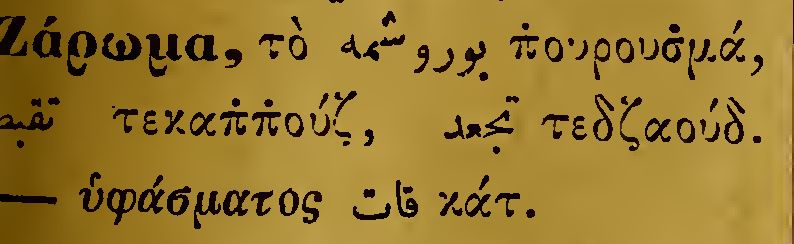 Ζάρωμα, τὸ بوروشمه π̇ουρουσ̇μά,
تقبض τεκαπ̇π̇ούζ̣, تجعد τεδζαούδ.
— ὑφάσματος قات κάτ.